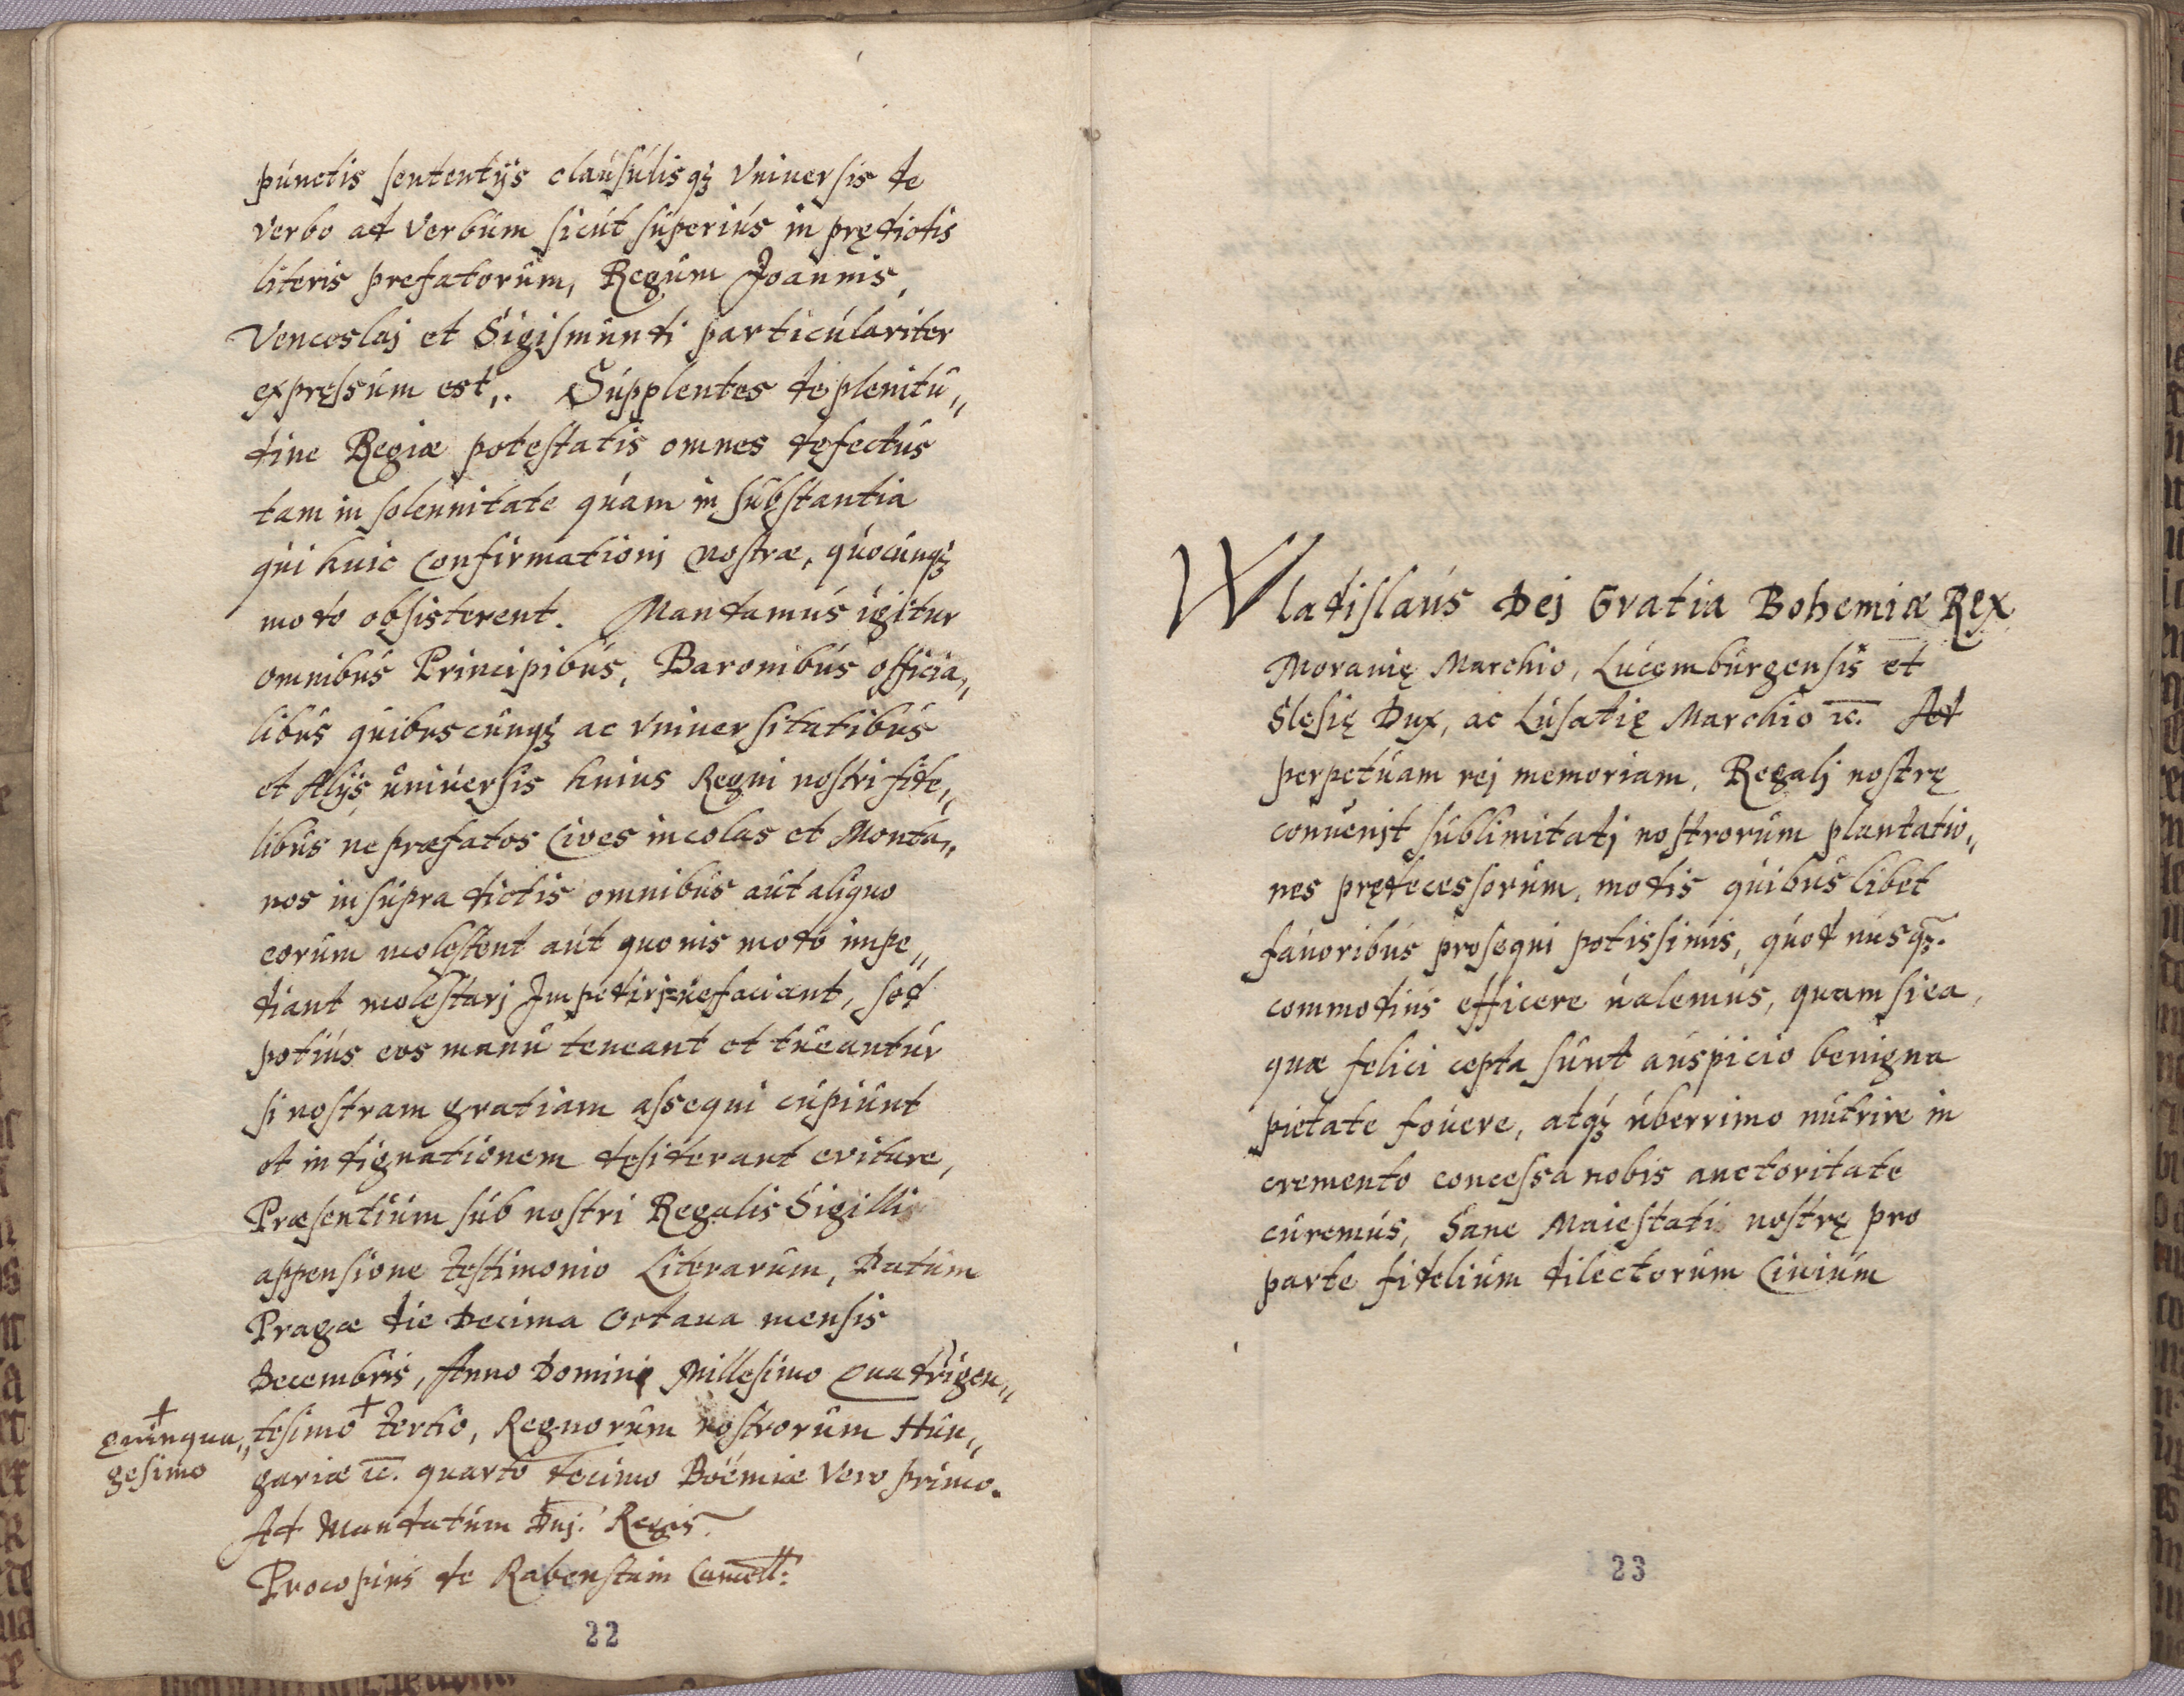 punctis sententijs clausulisqꝫ Vniuersis de
verbo ad verbum sicut superius in prędictis
literis prefatorum, Regum Joannis,
Venceslaj et Sigismundi particulariter
expręssum est,. Supplentes de plenitu„
dine Regiæ potestatis omnes dęfectus
tam in solennitate quam in substantia
qui huic Confirmationj nostræ, quocunqꝫ
modo obsisterent. Mandamus igitur
omnibus Principibus, Baronibus officia„
libus quibuscunqꝫ ac vniuersitatibus
et Alijs uniuersis huius Regni nostri fide„
libus ne præfatos Ciues incolas et Monta„
nos in supra dictis omnibus aut aliquo
eorum molestent aut quouis modo impe„
diant molestarj Impedirj ue faciant, sed
potius eos manu teneant et tueantur
si nostram gratiam assequi cupiunt
et indignationem dęsiderant euitare,
Præsentium sub nostri Regalis Sigilli
appensione testimonio Literarum, Datum
Pragæ die Decima Octaua mensis
Decembris, Anno Domini Millesimo Quadrigen„
+ quinqua„ gesimo
tesimo + tertio, Regnorum nostrorum Hun„
gariæ ꝛc. quarto decimo Boëmiæ Vero primo.
Ad Mandatum Dnj. Regis.
Procopius de Rabenstain Cancell:
22
Wladislaus Dej Gratia Bohemiæ Rex
Morauię Marchio, Lucemburgensis et
Slesię Dux, ac Lusatię Marchio ꝛc. Ad
perpetuam rej memoriam. Regalj nostrę
conuenit sublimitatj nostrorum plantatio„
nes prędecessorum, modis quibuslibet
fauoribus prosequi potissimis, quod nusqꝫ.
commodius efficere ualemus, quam si ea,
quæ felici cepta sunt auspicio benigna
pietate fouere, atqꝫ uberrimo nutrire in
cremento concessa nobis auctoritate
curemus, Sane Maiestati nostrę pro
parte fidelium dilectorum Ciuium
23